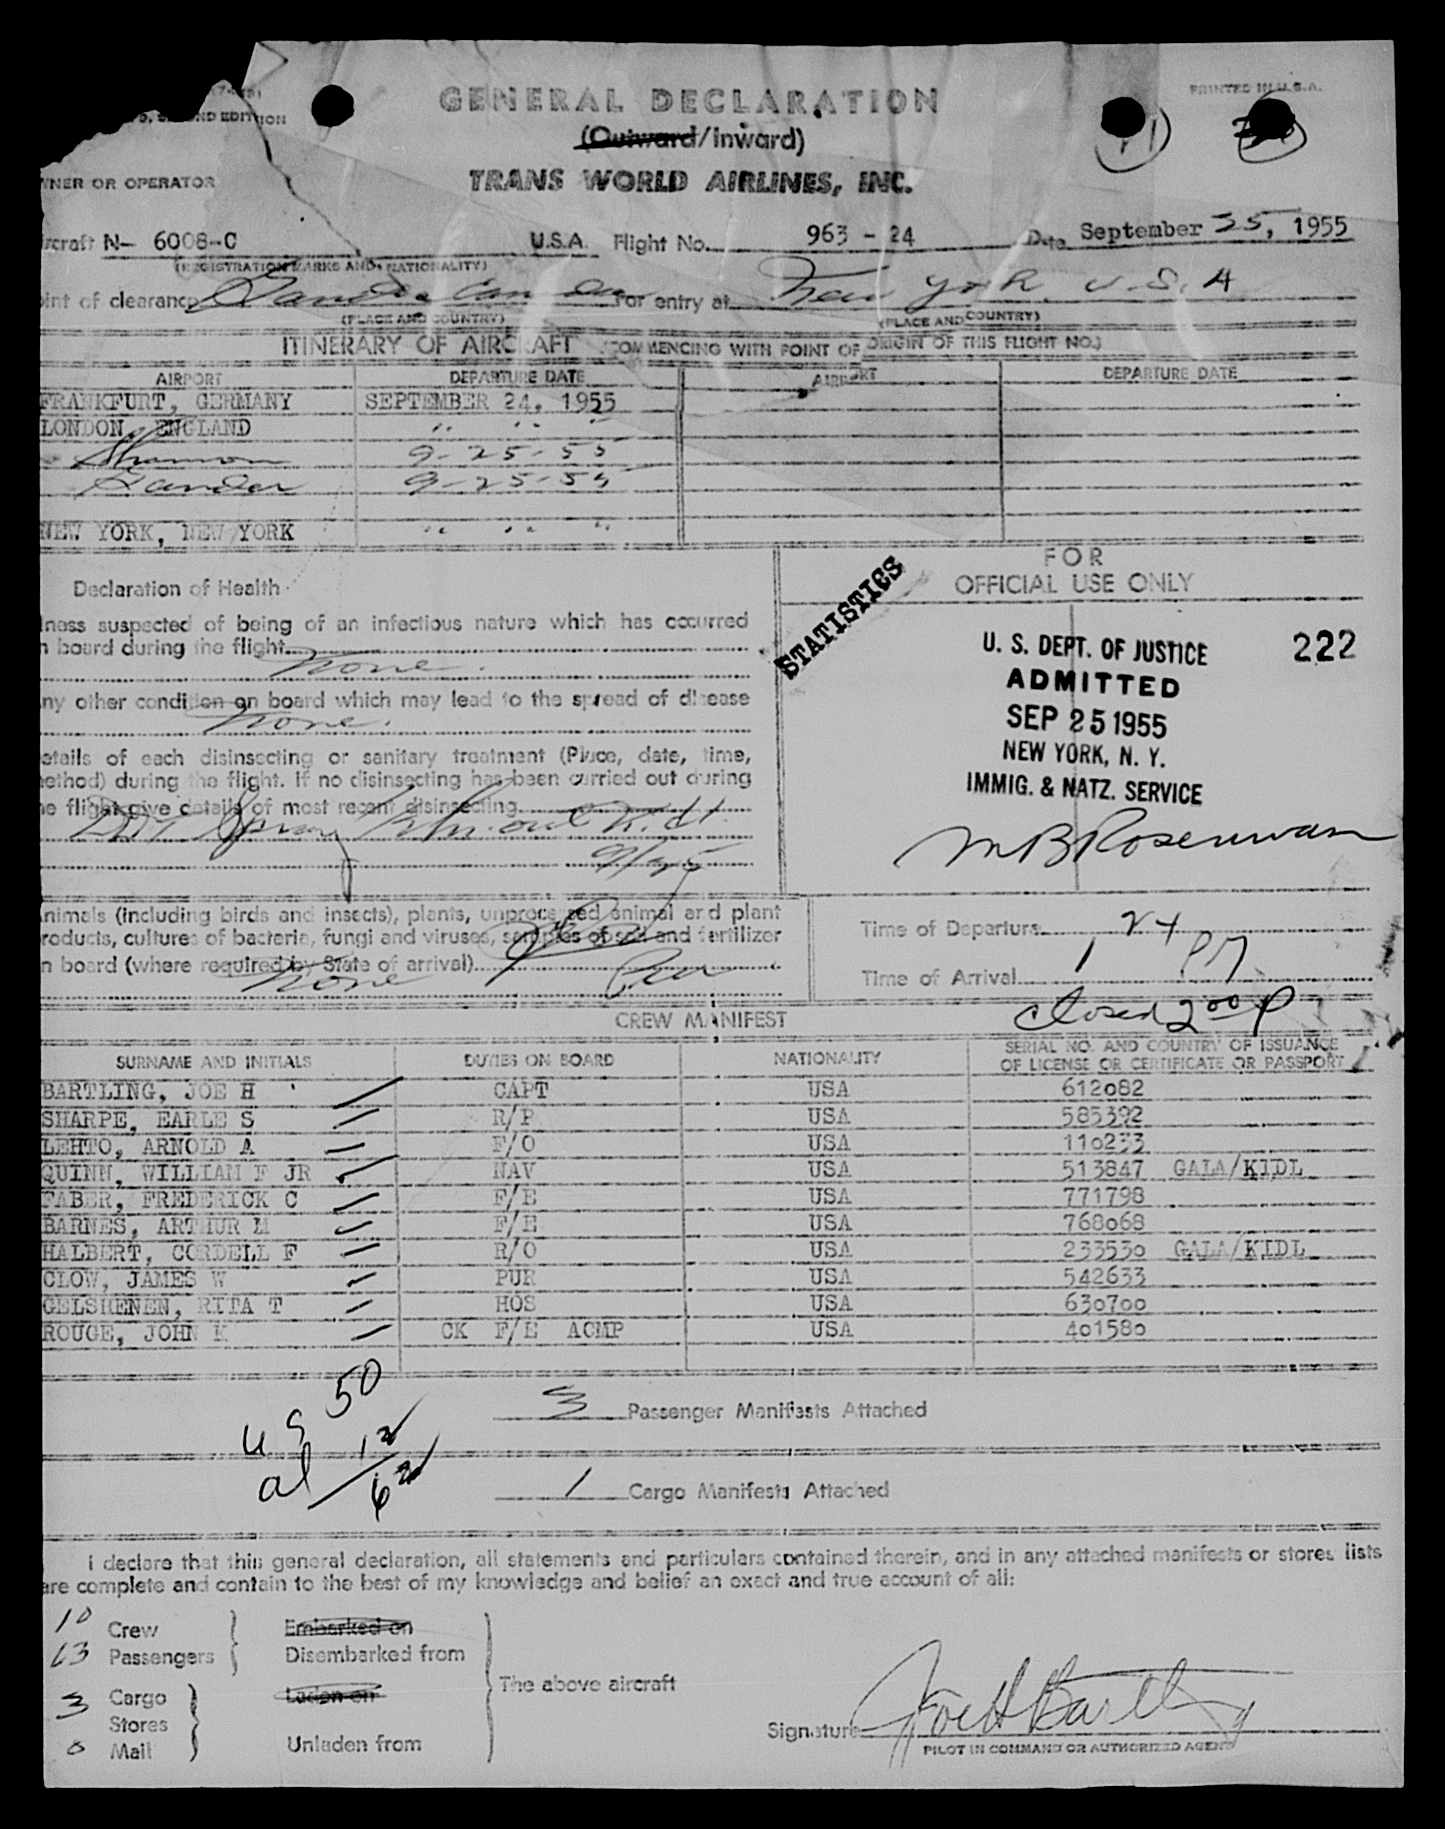 GENERAL DECLARATION
PRINTED IN U.S.A.
(Outward/Inward)
TRANS WORLD AIRLINES, INC.
WNER OR OPERATOR
ircraft N- 6008-C U.S.A. Flight No. 963 - 24 Date September 25, 1955
(REGISTRATION MARKS AND NATIONALITY)
oint of clearance Gander Canada For entry at New York U.S.A
(PLACE AND COUNTRY) (PLACE AND COUNTRY)
ITINERARY OF AIRCRAFT (COMMENCING WITH POINT OF ORIGIN OF THIS FLIGHT NO.)
AIRPORT DEPARTURE DATE AIRPORT DEPARTURE DATE
FRANKFURT, GERMANY SEPTEMBER 24, 1955
LONDON, ENGLAND " " "
Shannon 9-25-55
Gander 9-25-55
NEW YORK, NEW YORK " " "
FOR
OFFICIAL USE ONLY
STATISTICS
U. S. DEPT. OF JUSTICE 222
ADMITTED
SEP 25 1955
NEW YORK, N. Y.
IMMIG. & NATZ. SERVICE
Declaration of Health
lness suspected of being of an infectious nature which has occurred
n board during the flight
None.
ny other condition on board which may lead to the spread of disease
None.
etails of each disinsecting or sanitary treatment (Place, date, time,
ethod) during the flight. If no disinsecting has been carried out during
he flight give details of most recent disinsecting
9/25
nimals (including birds and insects), plants, unprocessed animal and plant
roducts, cultures of bacteria, fungi and viruses, samples of soil and fertilizer
n board (where required by State of arrival)
None
Time of Departure
Time of Arrival 1 PM
closed 2 00 P
CREW MANIFEST
SURNAME AND INITIALS DUTIES ON BOARD NATIONALITY SERIAL NO. AND COUNTRY OF ISSUANCE
OF LICENSE OR CERTIFICATE OR PASSPORT
BARTLING, JOE H CAPT USA 612082
SHARPE, EARLE S R/P USA 585392
LEHTO, ARNOLD A F/O USA 110233
QUINN, WILLIAM F JR NAV USA 513847 GALA/KIDL
FABER, FREDERICK C F/E USA 771798
BARNES, ARTHUR M F/E USA 768068
HALBERT, CORDELL F R/O USA 233530 GALA/KIDL
CLOW, JAMES W PUR USA 542633
GELSHENEN, RITA T HOS USA 630700
ROUGE, JOHN K CK F/E ACMP USA 401580
us 50
al 12
62
3 Passenger Manifests Attached
1 Cargo Manifests Attached
I declare that this general declaration, all statements and particulars contained therein, and in any attached manifests or stores lists
are complete and contain to the best of my knowledge and belief an exact and true account of all:
10 Crew Embarked on
63 Passengers Disembarked from
The above aircraft
3 Cargo Laden on
Stores
0 Mail Unladen from
Signature Joe H Bartling
PILOT IN COMMAND OR AUTHORIZED AGENT